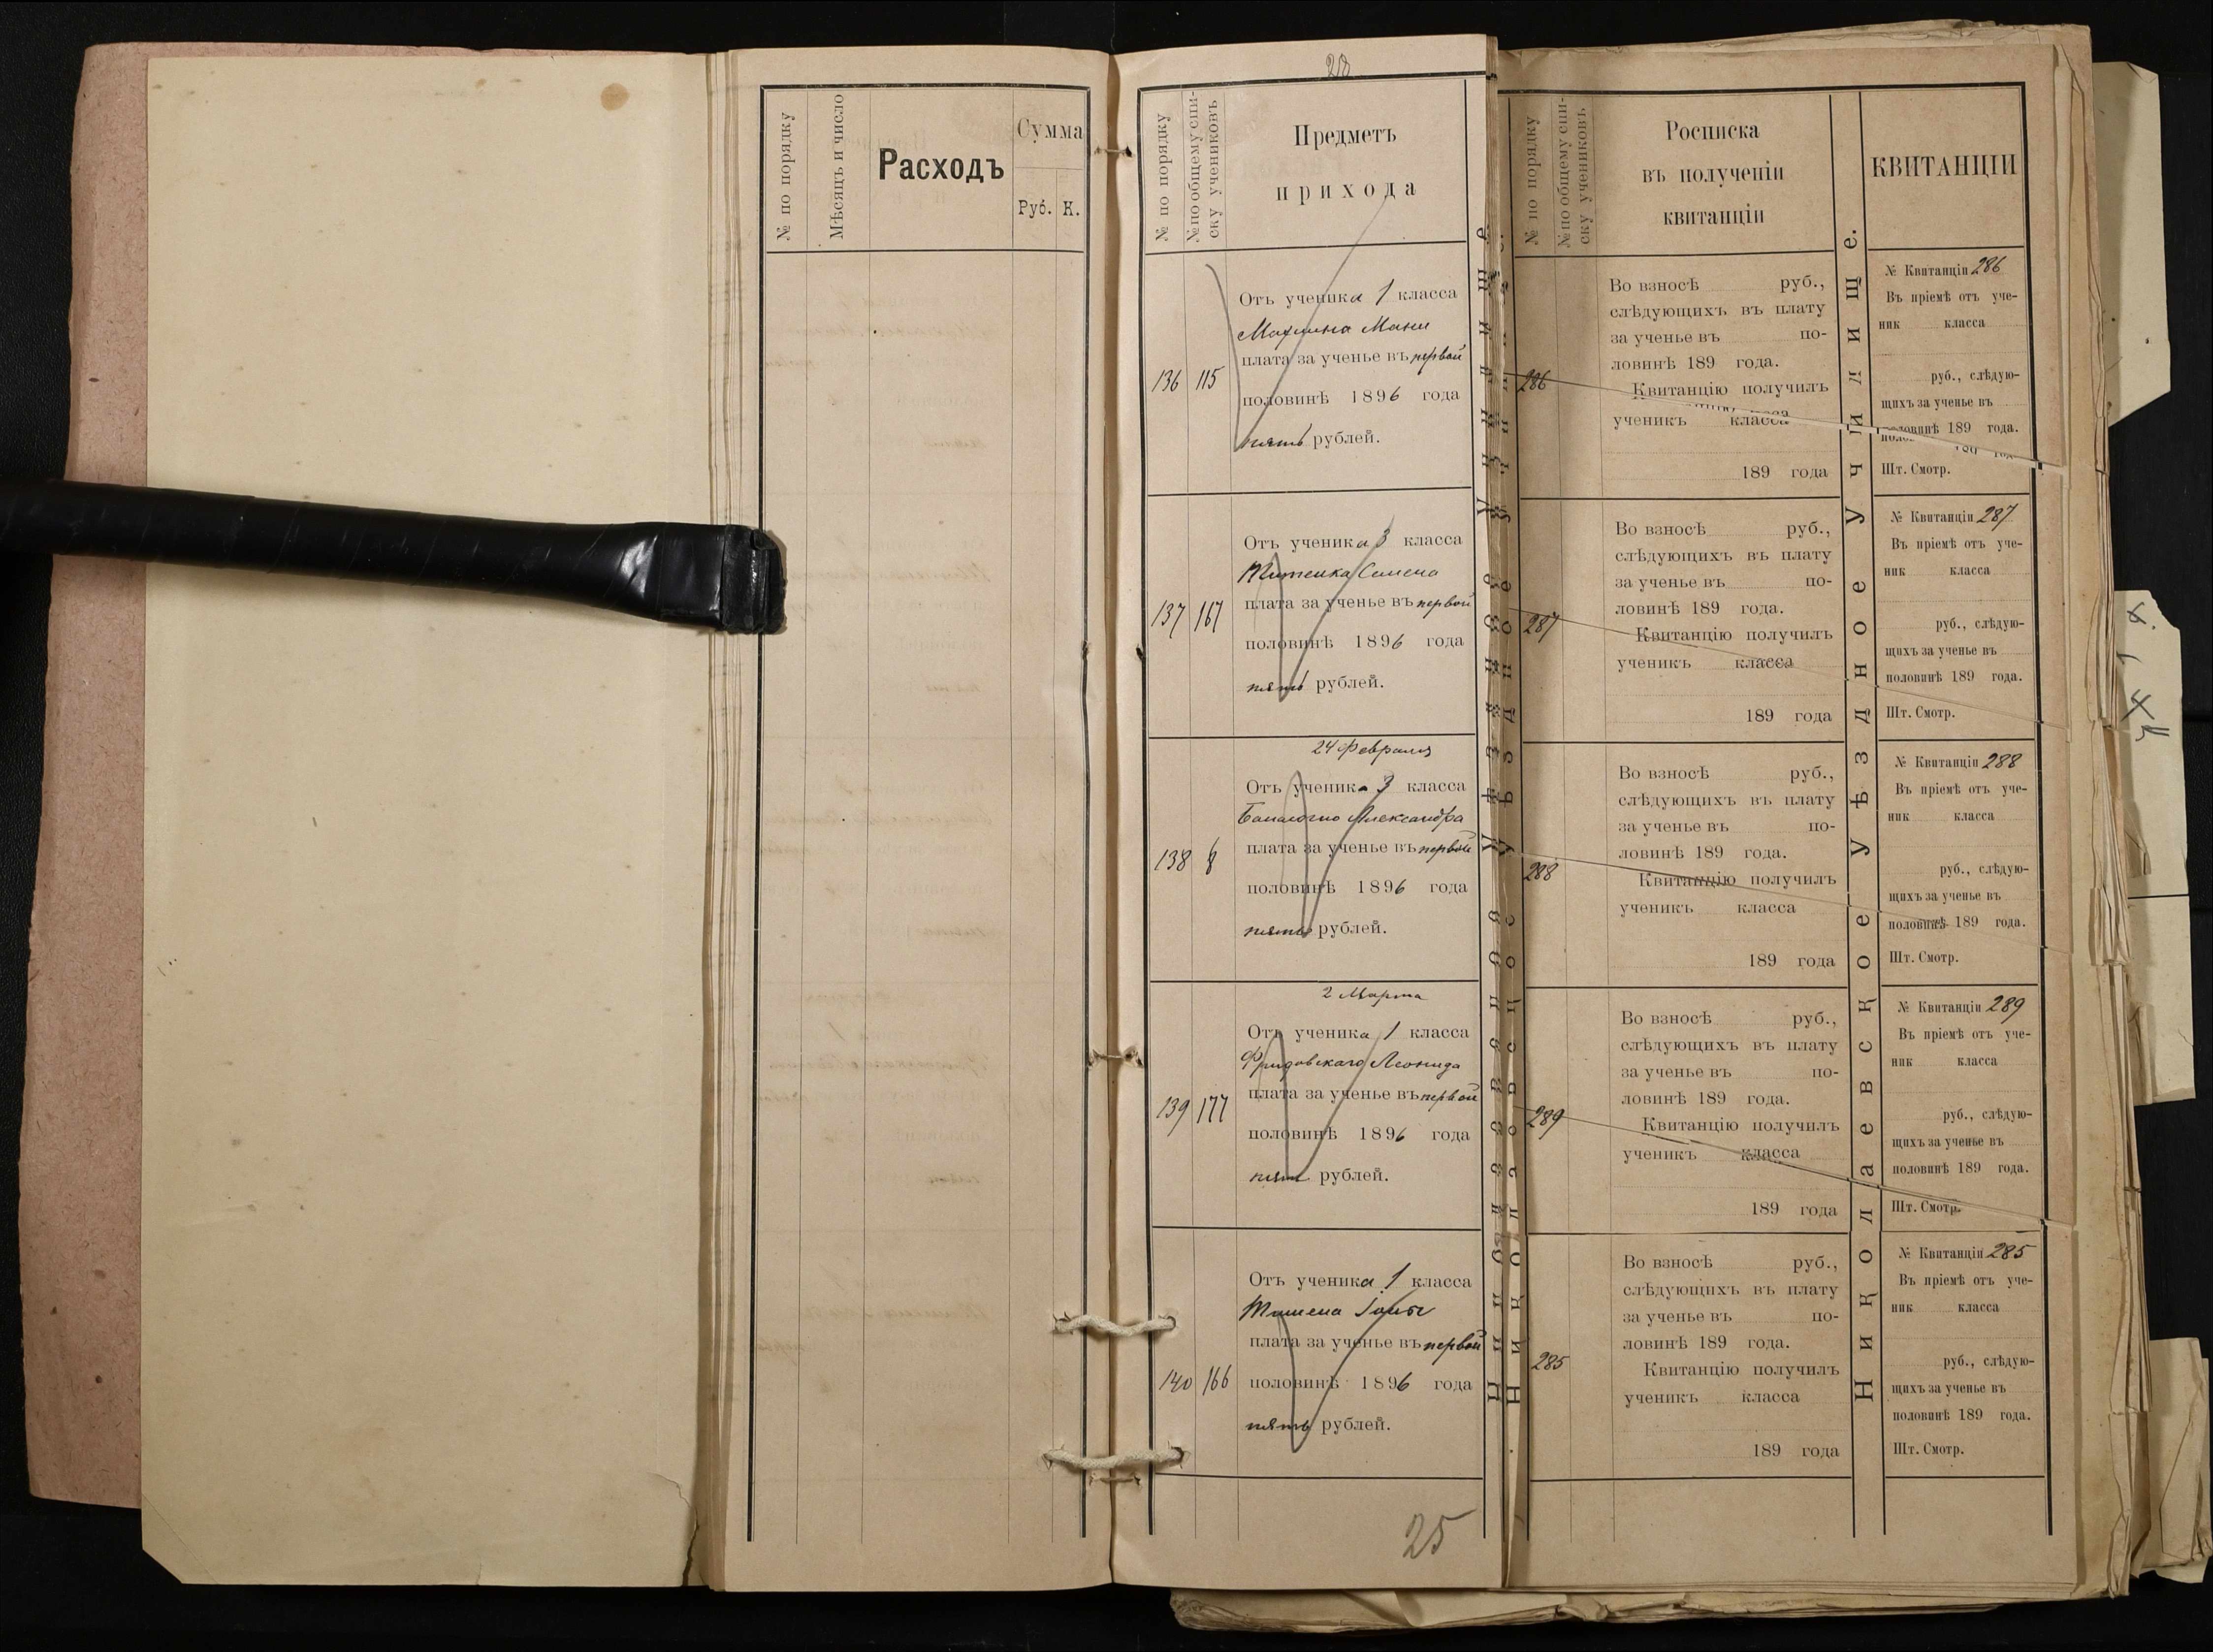 № по порядку
Мѣсяцъ и число
Расходъ
Сумма
Руб. К.
28
№ по порядку
№ по общему спи-
ску учениковъ
Предметъ
прихода
136 115
Отъ ученика 1 класса
плата за ученье въ первой
половинѣ 1896 года
пять рублей.
137 167
Отъ ученика 3 класса
Титенка Семена
плата за ученье въ первой
половинѣ 1896 года
пять рублей.
24 Февраля
138 8
Отъ ученика 3 класса
Александра
плата за ученье въ первой
половинѣ 1896 года
пять рублей.
2 Марта
139 177
Отъ ученика 1 класса
Фридовскаго Леонида
плата за ученье въ первой
половинѣ 1896 года
пять рублей.
140 166
Отъ ученика 1 класса
плата за ученье въ первой
половинѣ 1896 года
пять рублей.
25
№ по порядку
№ по общему спи-
ску учениковъ
Росписка
въ полученіи
квитанціи
286
Во взносѣ руб.,
слѣдующихъ въ плату
за ученье въ по-
ловинѣ 189 года.
Квитанцію получилъ
ученикъ класса
189 года
287
Во взносѣ руб.,
слѣдующихъ въ плату
за ученье въ по-
ловинѣ 189 года.
Квитанцію получилъ
ученикъ класса
189 года
288
Во взносѣ руб.,
слѣдующихъ въ плату
за ученье въ по-
ловинѣ 189 года.
Квитанцію получилъ
ученикъ класса
189 года
289
Во взносѣ руб.,
слѣдующихъ въ плату
за ученье въ по-
ловинѣ 189 года.
Квитанцію получилъ
ученикъ класса
189 года
285
Во взносѣ руб.,
слѣдующихъ въ плату
за ученье въ по-
ловинѣ 189 года.
Квитанцію получилъ
ученикъ класса
189 года
Николаевское Уѣздное Училище.
КВИТАНЦІИ
№ Квитанціи 286
Въ пріемѣ отъ уче-
ник класса
руб., слѣдую-
щихъ за ученье въ
половинѣ 189 года.
Шт. Смотр.
№ Квитанціи 287
Въ пріемѣ отъ уче-
ник класса
руб., слѣдую-
щихъ за ученье въ
половинѣ 189 года.
Шт. Смотр.
№ Квитанціи 288
Въ пріемѣ отъ уче-
ник класса
руб., слѣдую-
щихъ за ученье въ
половинѣ 189 года.
Шт. Смотр.
№ Квитанціи 289
Въ пріемѣ отъ уче-
ник класса
руб., слѣдую-
щихъ за ученье въ
половинѣ 189 года.
Шт. Смотр.
№ Квитанціи 285
Въ пріемѣ отъ уче-
ник класса
руб., слѣдую-
щихъ за ученье въ
половинѣ 189 года.
Шт. Смотр.